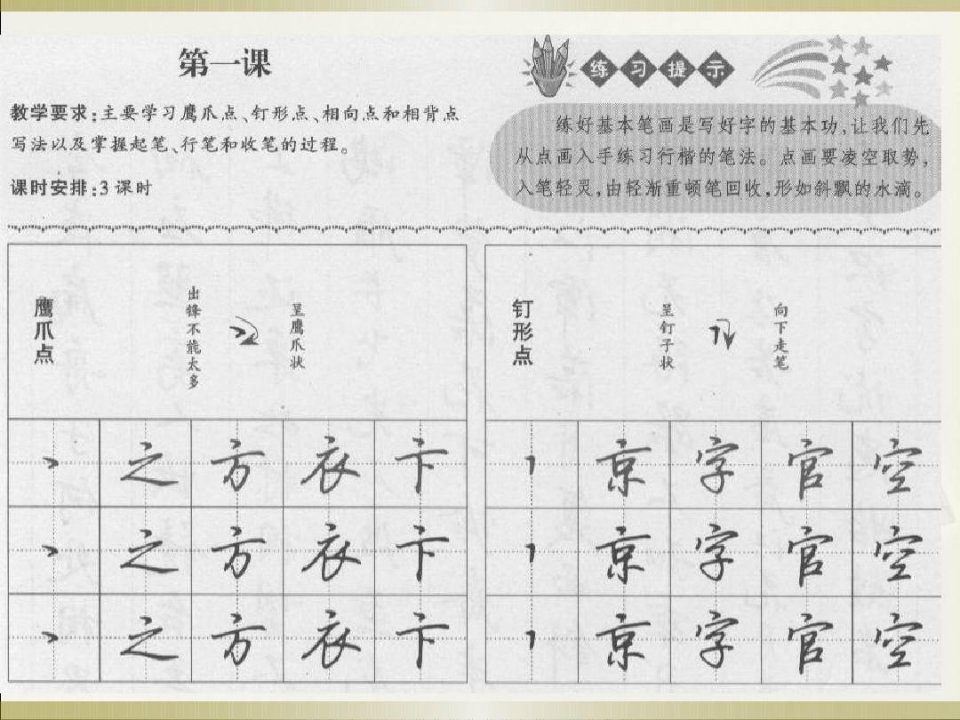 第一课
教学要求:主要学习鹰爪点、钉形点、相向点和相背点
写法以及掌握起笔、行笔和收笔的过程。
课时安排:3课时
练习提示
练好基本笔画是写好字的基本功,让我们先
从点画入手练习行楷的笔法。点画要凌空取势,
入笔轻灵,由轻渐重顿笔回收,形如斜飘的水滴。
鹰爪点
出锋不能太多
呈鹰爪状
丶 之 方 衣 卞
丶 之 方 衣 卞
丶 之 方 衣 卞
钉形点
呈钉子状
向下走笔
丶 京 字 官 空
丶 京 字 官 空
丶 京 字 官 空